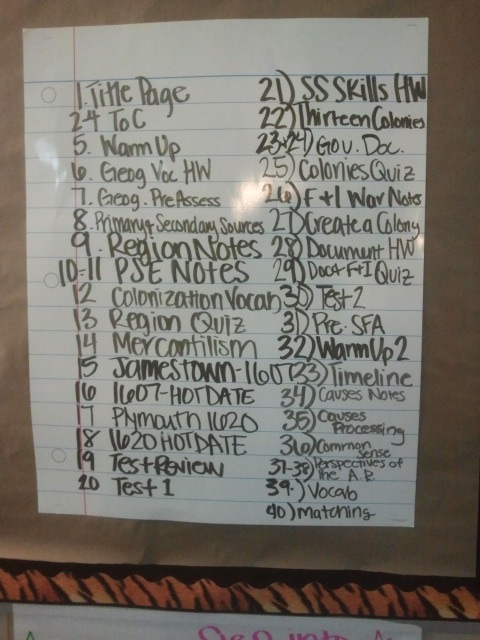 1. Title Page
2-4 ToC
5. Warm Up
6. Geog Voc HW
7. Geog. Pre Assess
8. Primary & Secondary Sources
9. Region Notes
10-11 PSE NOTES
12 Colonization Vocab
13 Region Quiz
14 Mercantilism
15 Jamestown-1607
16 1607-HOT DATE
17 Plymouth 1620
18 1620 HOT DATE
19 Test Review
20 Test 1
21) SS Skills HW
22) Thirteen Colonies
23+24) Gov. Doc.
25) Colonies Quiz
26) F+I War Notes
27) Create a Colony
28) Document HW
29) Doc+F+I Quiz
30) Test 2
31) Pre-SFA
32) Warm Up 2
33) Timeline
34) Causes Notes
35) Causes
Processing
36) Common
Sense
37-38) Perspectives of
the A.R.
39.) Vocab
40) matching